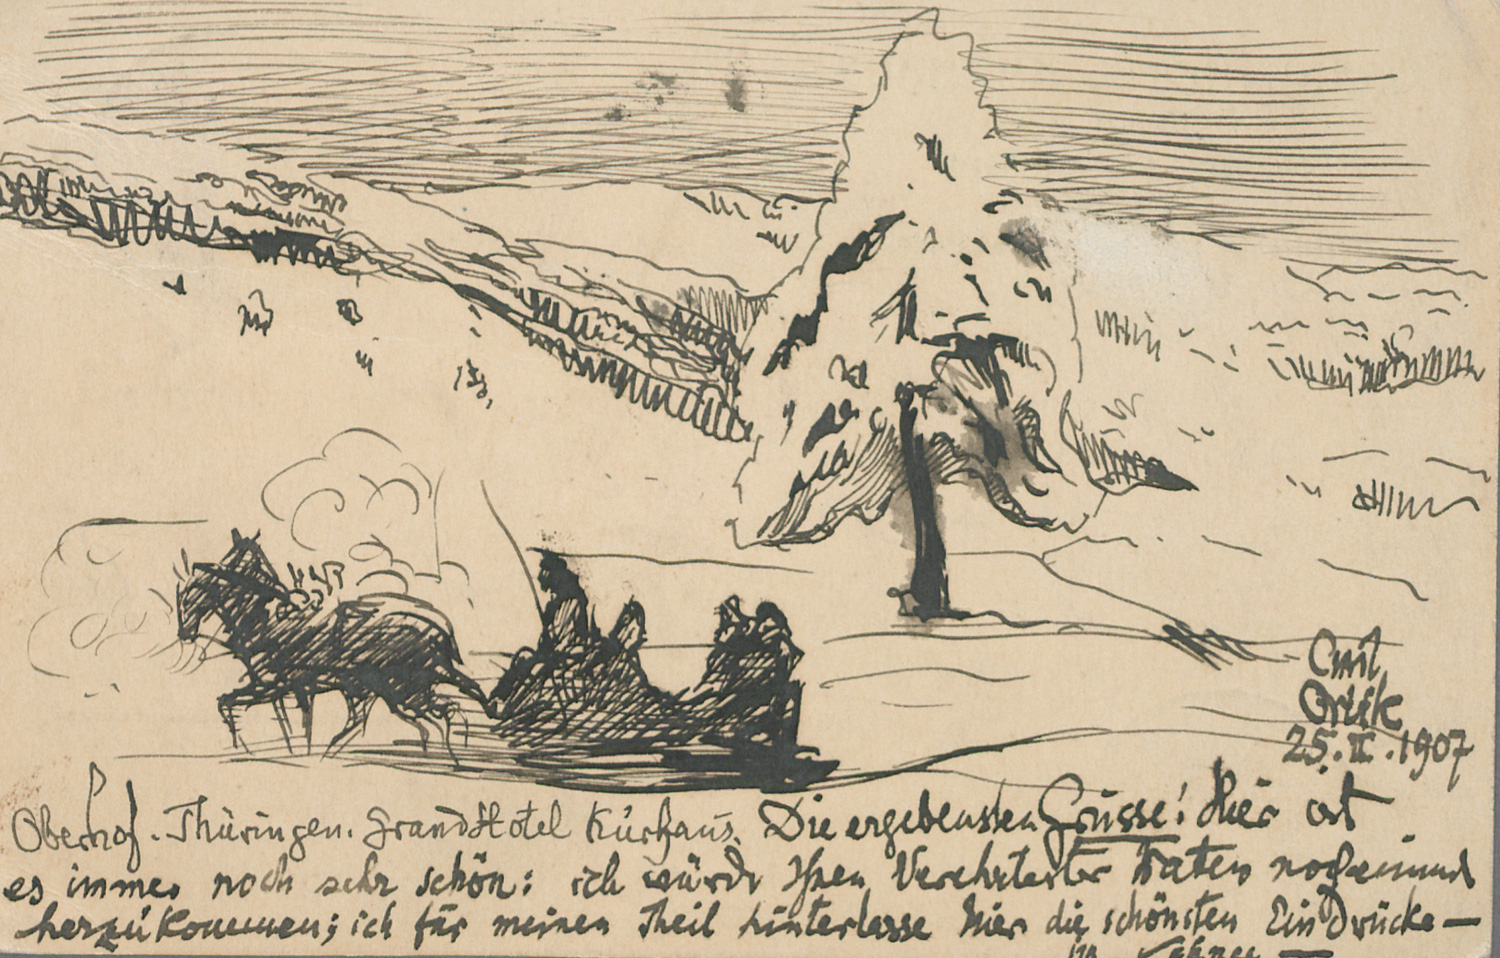 Emil
Orlik
25.II.1907
Oberhof. Thüringen. Grand Hotel Kurhaus. Die ergebensten Grüsse! Hier ist
es immer noch sehr schön: ich würde Ihnen Verehrtester raten nocheinmal
herzukommen; ich für meinen Theil hinterlasse hier die schönsten Eindrücke —